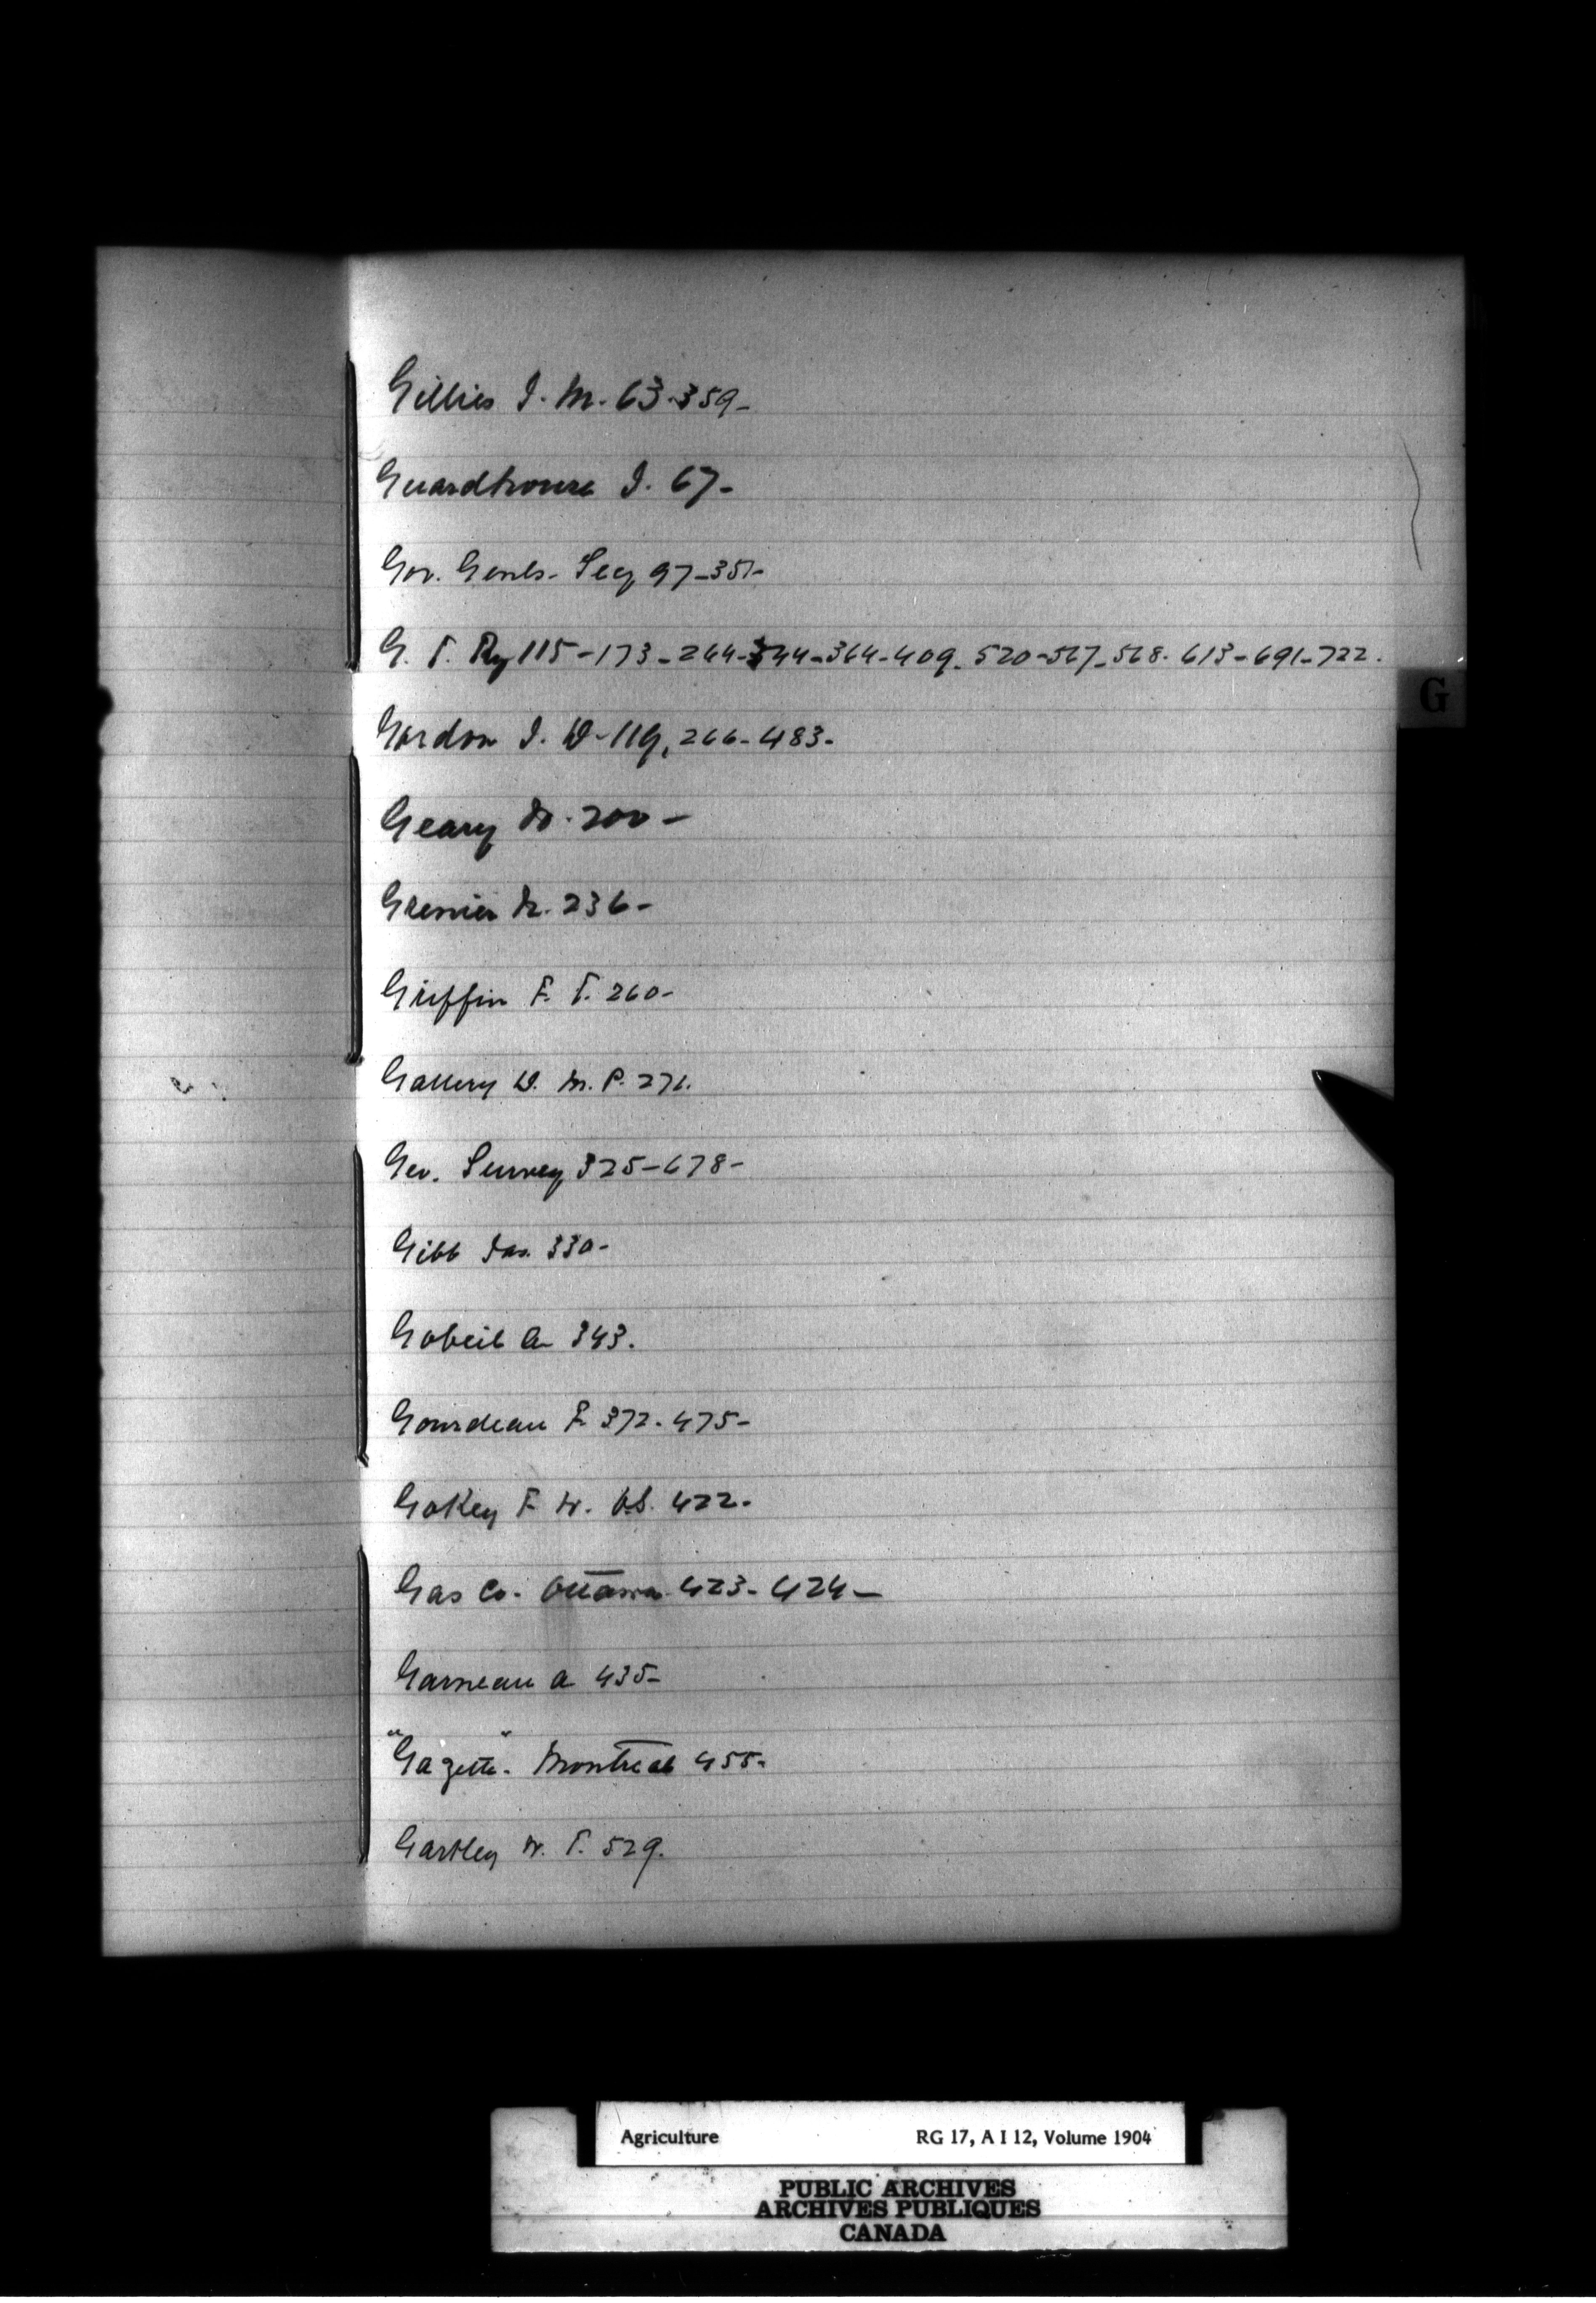 Gillies J. M. 63-359-
Guardhouse J. 67-
Gov. Genls. Secy 97-351-
G. T. Ry 115-173-264-344-364-409-520-567-568-613-691-722.
Gordon J. D-119, 266-483-
Geary 200-
Grenier 236-
Griffin F. T. 260-
G
Gallery D. M. P. 271.
Geo. Survey 325-678-
Gibb Jas. 330-
Gobeil A 343.
Gourdeau F 372-475-
Gokey F W. V.S. 422-
Gas Co. Ottawa 423-424-
Garneau A 435-
"Gazette". Montreal 455-
Gartley W. T. 529.
Agriculture RG 17, A I 12, Volume 1904
PUBLIC ARCHIVES
ARCHIVES PUBLIQUES
CANADA